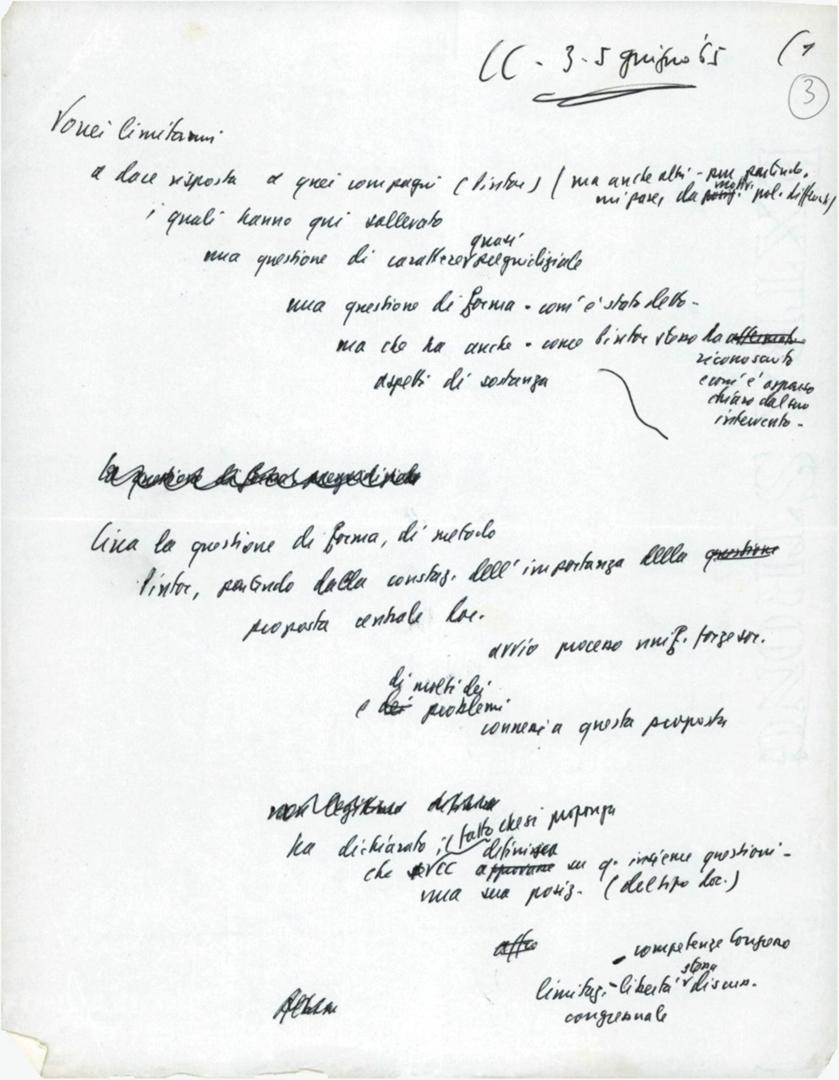 CC - 3-5 giugno '65 (1
3
Vorrei limitarmi
a dare risposta a quei compagni (Pintor) (ma anche altri - pur partendo,
mi pare, da motivi pol. differenti)
i quali hanno qui sollevato
quasi
una questione di carattere pregiudiziale
una questione di forma - com'è stato detto -
ma che ha anche - come Pintor stesso ha
riconosciuto
aspetti di sostanza
e com'è apparso
chiaro dal suo
intervento -
Circa la questione di forma, di metodo
Pintor, partendo dalla constaz. dell'importanza della questione
proposta centrale doc.
avvio processo unif. forze soc.
di molti dei
e dei problemi
connessi a questa proposta
ha dichiarato il fatto che si proponga
definisca
che CC approvasse su q. insieme questioni -
una sua posiz. (del tipo doc.)
- competenze Congresso
stessa
limitaz. - libertà discuss.
congressuale